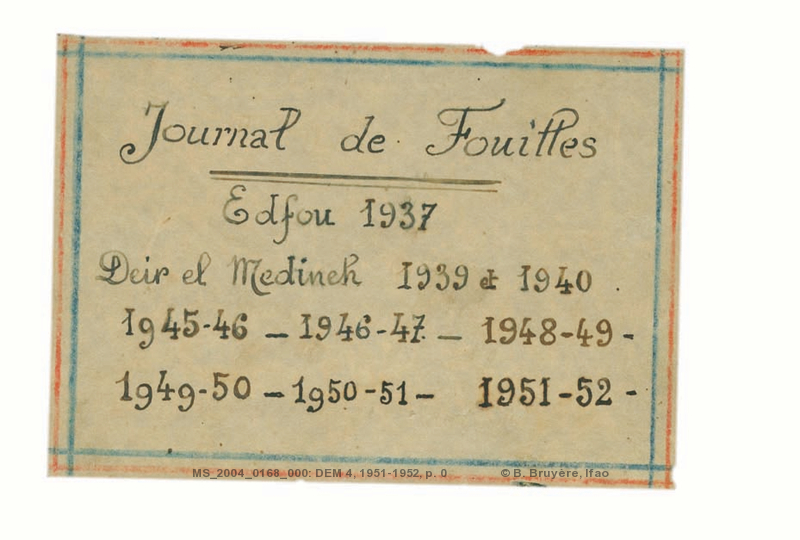 Journal de Fouilles
Edfou 1937
Deir el Medineh 1939 et 1940.
1945-46 – 1946-47 – 1948-49 -
1949-50 – 1950-51 – 1951-52 -
MS_2004_0168_000: DEM 4, 1951-1952, p. 0 © B. Bruyère, Ifao